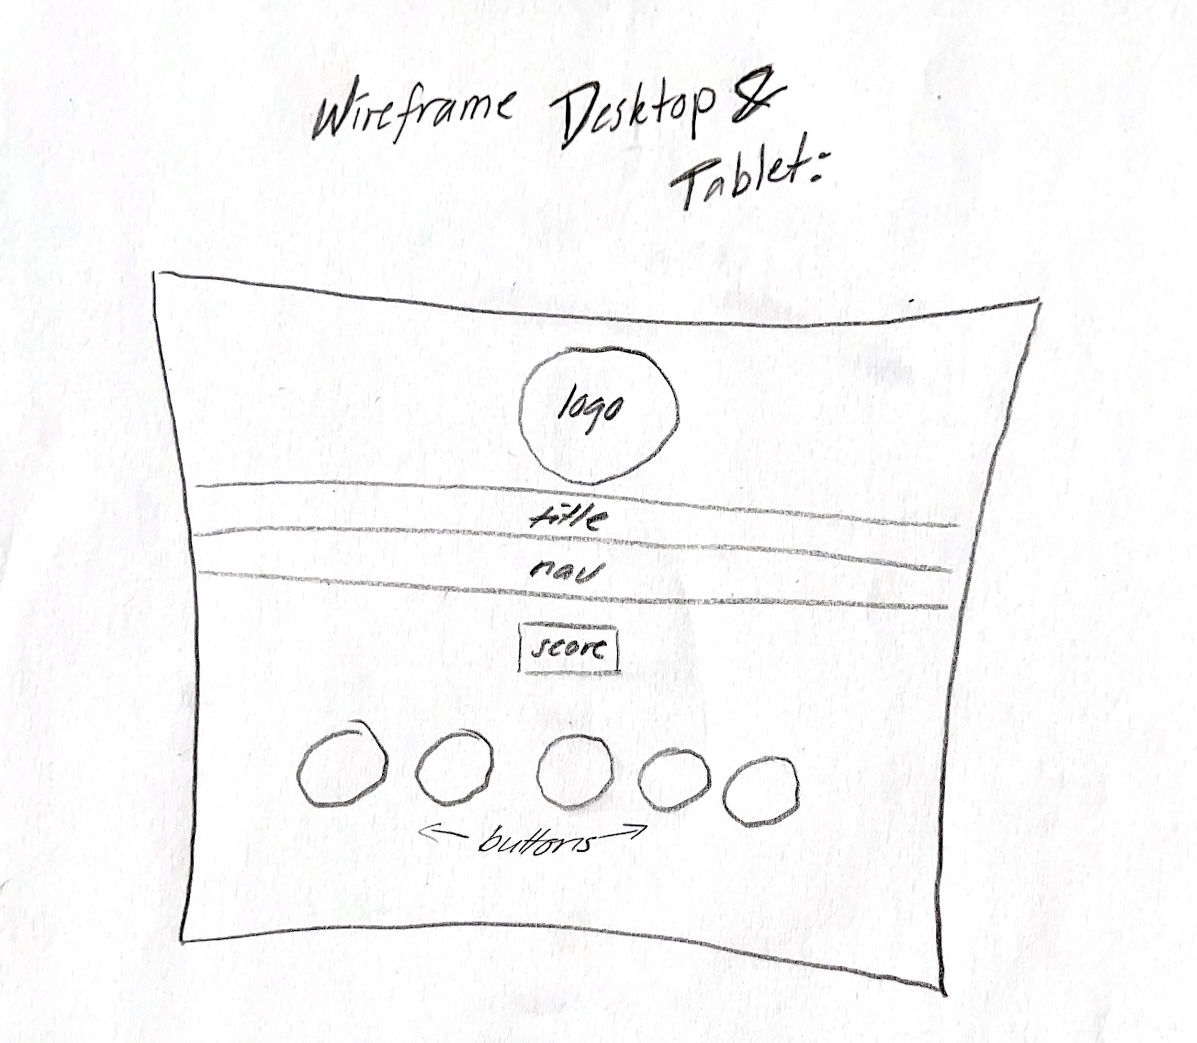 Wireframe Desktop &
Tablet:
logo
title
nav
score
buttons